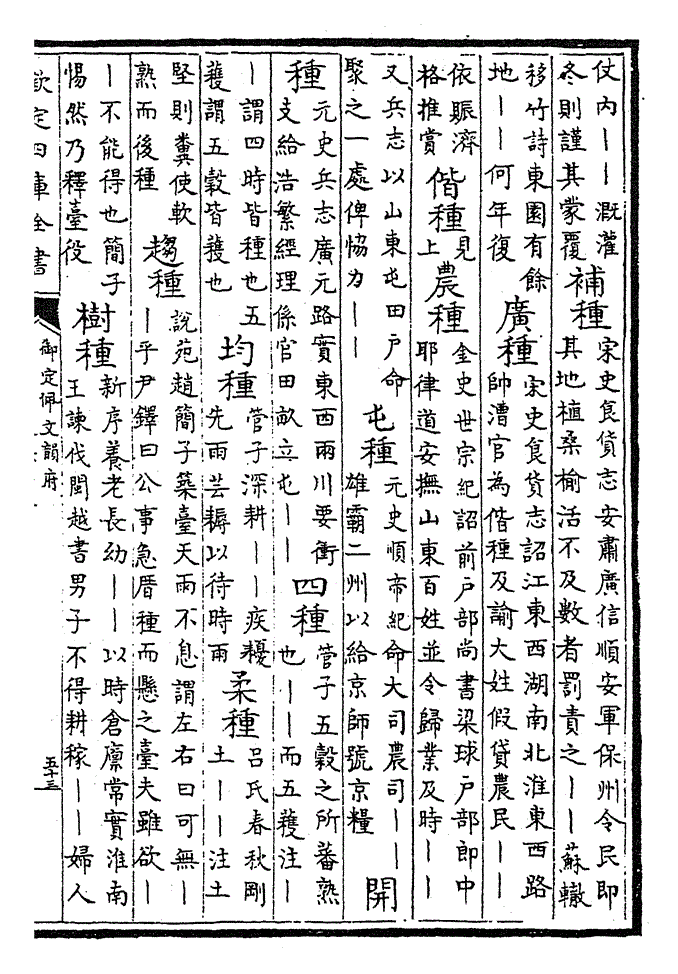 仗內丨丨溉灌
冬則謹其蒙覆
補種
宋史食貨志安肅廣信順安軍保州令民即
其地植桑榆活不及數者罰責之丨丨蘇轍
移竹詩東園有餘
地丨丨何年復
廣種
宋史食貨志詔江東西湖南北淮東西路
帥漕官為偕種及諭大姓假貸農民丨丨
依賑濟
格推賞
偕種
見
上
農種
金史世宗紀詔前戶部尚書梁球戶部郎中
耶律道安撫山東百姓並令歸業及時丨丨
又兵志以山東屯田戶命
聚之一處俾協力丨丨
屯種
元史順帝紀命大司農司丨丨
雄霸二州以給京師號京糧
開
種
元史兵志廣元路實東西兩川要衝
支給浩繁經理係官田畝立屯丨丨
四種
管子五穀之所蕃熟
也丨丨而五穫注丨
丨謂四時皆種也五
穫謂五穀皆穫也
均種
管子深耕丨丨疾耰
先雨芸耨以待時雨
柔種
呂氏春秋剛
土丨丨注土
堅則糞使軟
熟而後種
趨種
說苑趙簡子築臺天雨不息謂左右曰可無丨
丨乎尹鐸曰公事急厝種而懸之臺夫雖欲丨
丨不能得也簡子
惕然乃釋臺役
樹種
新序養老長幼丨丨以時倉廩常實淮南
王諫伐閩越書男子不得耕稼丨丨婦人
欽定四庫全書
御定佩文韻府
五十三